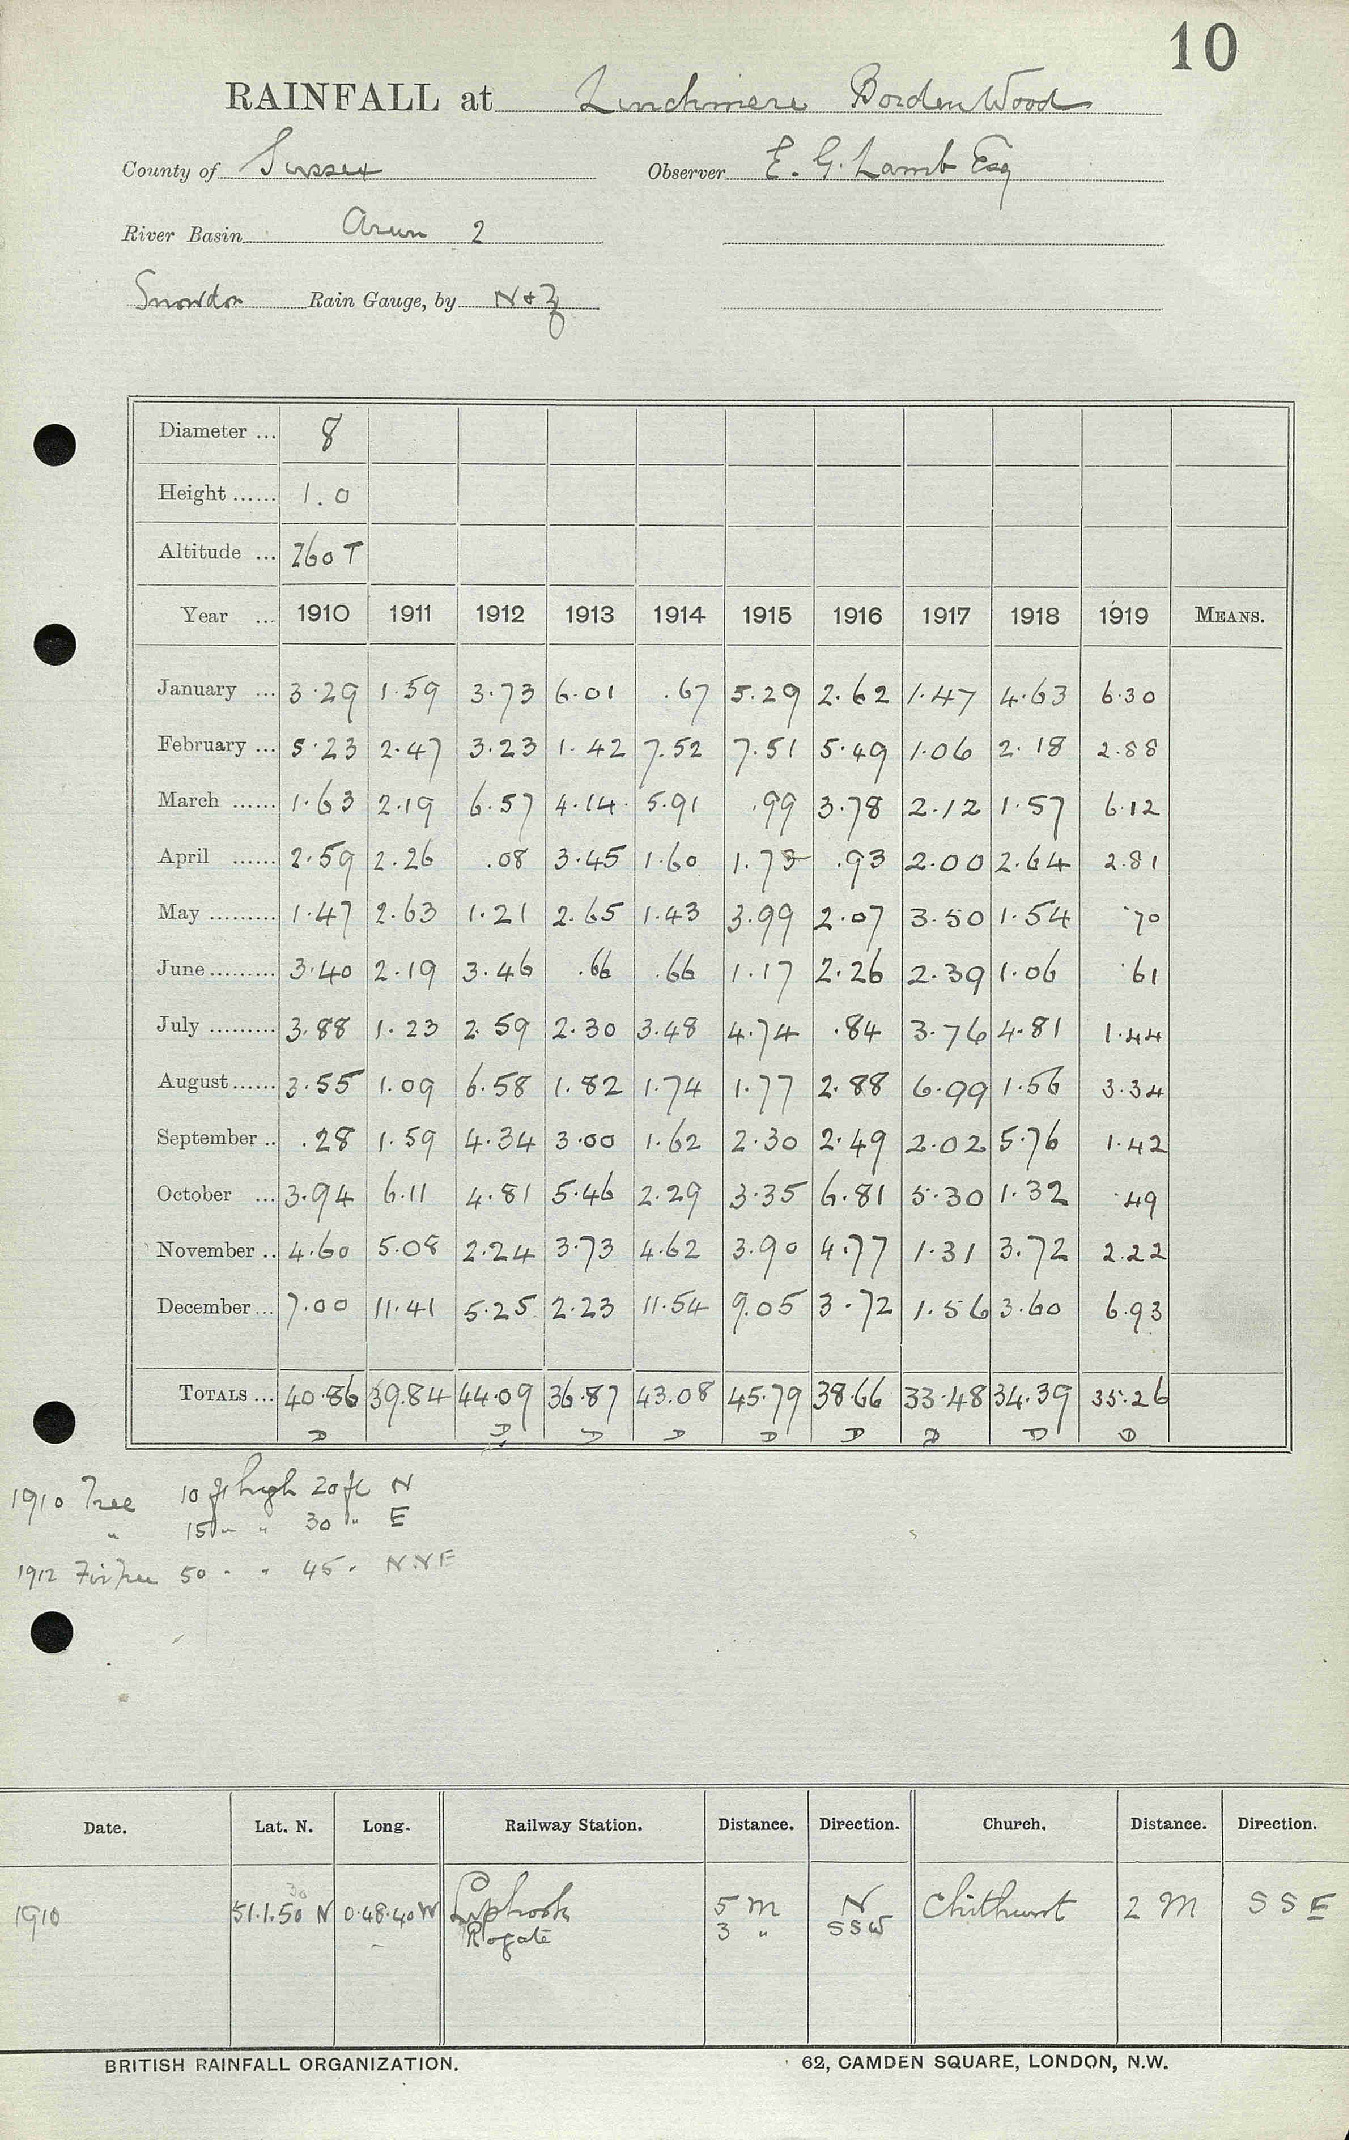 10
RAINFALL at Linchmere Borden Wood
County of Sussex Observer E. G. Lamb Esq
River Basin Arun 2
Snowdon Rain Gauge, by N & Z
Diameter ... 8
Height ...... 1.0
Altitude ... 260 T
Year ... 1910 1911 1912 1913 1914 1915 1916 1917 1918 1919 MEANS.
January ... 3.29 1.59 3.73 6.01 .67 5.29 2.62 1.47 4.63 6.30
February ... 5.23 2.47 3.23 1.42 7.52 7.51 5.49 1.06 2.18 2.88
March ...... 1.63 2.19 6.57 4.14 5.91 .99 3.78 2.12 1.57 6.12
April ...... 2.59 2.26 .08 3.45 1.60 1.73 .93 2.00 2.64 2.81
May ......... 1.47 2.63 1.21 2.65 1.43 3.99 2.07 3.50 1.54 .70
June ......... 3.40 2.19 3.46 .66 .66 1.17 2.26 2.39 1.06 .61
July ......... 3.88 1.23 2.59 2.30 3.48 4.74 .84 3.76 4.81 1.44
August ...... 3.55 1.09 6.58 1.82 1.74 1.77 2.88 6.99 1.56 3.34
September .. .28 1.59 4.34 3.00 1.62 2.30 2.49 2.02 5.76 1.42
October ... 3.94 6.11 4.81 5.46 2.29 3.35 6.81 5.30 1.32 .49
November .. 4.60 5.08 2.24 3.73 4.62 3.90 4.77 1.31 3.72 2.22
December ... 7.00 11.41 5.25 2.23 11.54 9.05 3.72 1.56 3.60 6.93
TOTALS ... 40.86 39.84 44.09 36.87 43.08 45.79 38.66 33.48 34.39 35.26
D D D D D D D D D
1910 Tree 10 ft high 20 ft N
" 15 " " 30 " E
1912 Fir tree 50 " " 45 " NNE
Date. Lat. N. Long. Railway Station. Distance. Direction. Church. Distance. Direction.
30
1910 51.1.50 N 0.48.40 W Liphook 5 m N Chithurst 2 M SSE
Rogate 3 " SSW
BRITISH RAINFALL ORGANIZATION. 62, CAMDEN SQUARE, LONDON, N.W.